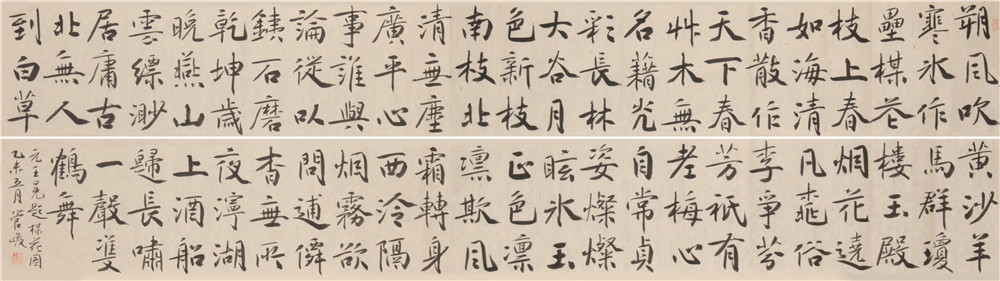 朔風吹
寒冰作
壘楳花
枝上春
如海清
香散作
天下春
艸木無
名籍光
彩長林
大谷月
色新枝
南枝北
清無塵
廣平心
事誰與
論從以
銕石磨
乾坤歲
晚燕山
雲縹渺
居庸古
北無人
到白草
黃沙羊
馬群瓊
樓玉殿
烟花遶
凡桃俗
李爭芬
芳祇有
老梅心
自常貞
姿燦燦
眩冰玉
正色凛
凛欺風
霜轉身
西冷隔
烟霧欲
問逋僊
杳無所
夜濘湖
上酒船
歸長嘯
一聲雙
鶴舞
元王冕題楳花圖
乙未五月管峻